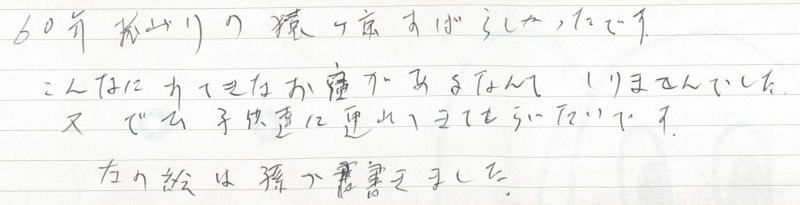 60年振りの猿ヶ京すばらしかったです。
こんなにすてきなお宿があるなんてしりませんでした。
又 子供達に連れてきてもらいたいです。
左の絵は孫が書きました。